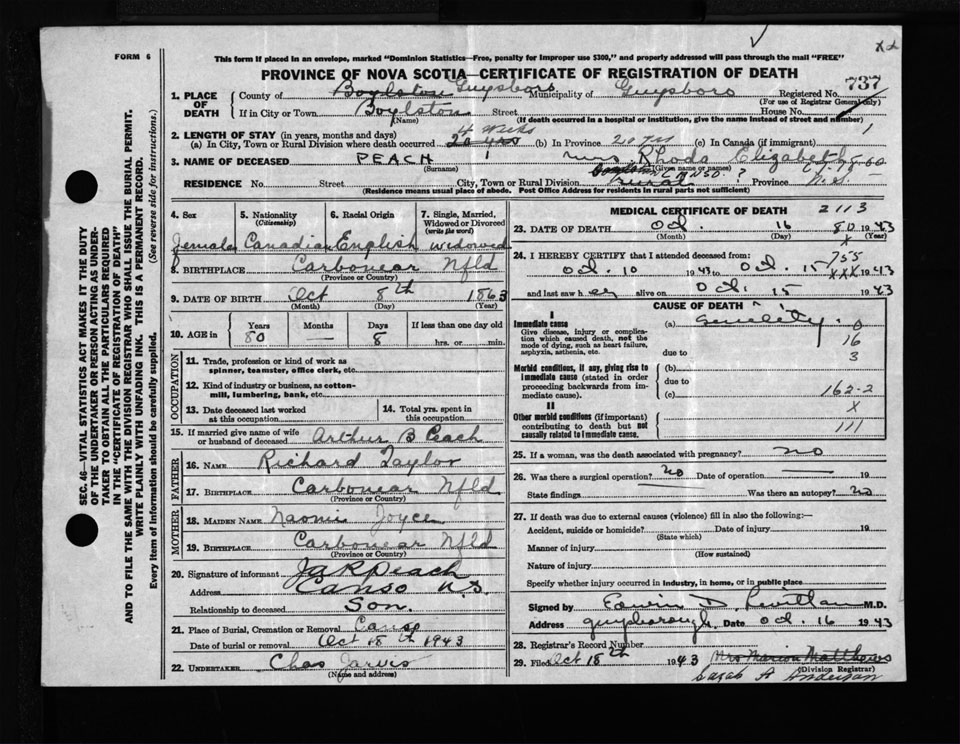 FORM 6
This form if placed in an envelope, marked "Dominion Statistics—Free, penalty for improper use $300," and properly addressed will pass through the mail "FREE"
PROVINCE OF NOVA SCOTIA—CERTIFICATE OF REGISTRATION OF DEATH
SEC. 46—VITAL STATISTICS ACT MAKES IT THE DUTY
OF THE UNDERTAKER OR PERSON ACTING AS UNDER-
TAKER TO OBTAIN ALL THE PARTICULARS REQUIRED
IN THE "CERTIFICATE OF REGISTRATION OF DEATH"
AND TO FILE THE SAME WITH THE DIVISION REGISTRAR WHO SHALL ISSUE THE BURIAL PERMIT.
WRITE PLAINLY WITH UNFADING INK. THIS IS A PERMANENT RECORD.
Every item of information should be carefully supplied. (See reverse side for instructions.)
1. PLACE OF DEATH County of Boylston Guysboro Municipality of Guysboro Registered No. 737
(For use of Registrar General only)
If in City or Town Boylston Street House No.
(Name) (If death occurred in a hospital or institution, give the name instead of street and number)
2. LENGTH OF STAY (in years, months and days)
(a) In City, Town or Rural Division where death occurred 20 yrs 4 Weeks (b) In Province 20 yrs (c) In Canada (if immigrant) 1
3. NAME OF DECEASED PEACH Mrs Rhoda Elizabeth
(Surname) (Given name or names)
RESIDENCE No. Street City, Town or Rural Division Boylston Canso ? Rural Province N.S.
(Residence means usual place of abode. Post Office Address for residents in rural parts not sufficient)
4. Sex Female
5. Nationality (Citizenship) Canadian
6. Racial Origin English
7. Single, Married, Widowed or Divorced (write the word) widowed
8. BIRTHPLACE Carbonear Nfld
(Province or Country)
9. DATE OF BIRTH Oct 8th 1863
(Month) (Day) (Year)
10. AGE in Years 80 Months — Days 8 If less than one day old hrs. or min.
OCCUPATION
11. Trade, profession or kind of work as spinner, teamster, office clerk, etc.
12. Kind of industry or business, as cotton-mill, lumbering, bank, etc.
13. Date deceased last worked at this occupation
14. Total yrs. spent in this occupation
15. If married give name of wife or husband of deceased Arthur B Peach
FATHER
16. NAME Richard Taylor
17. BIRTHPLACE Carbonear Nfld
(Province or Country)
MOTHER
18. MAIDEN NAME Naomi Joyce
19. BIRTHPLACE Carbonear Nfld
(Province or Country)
20. Signature of informant Jas R Peach
Address Canso N.S.
Relationship to deceased Son.
21. Place of Burial, Cremation or Removal Canso
Date of burial or removal Oct 18th 1943
22. UNDERTAKER Chas Jarvis
(Name and address)
MEDICAL CERTIFICATE OF DEATH 2113
23. DATE OF DEATH Oct. 16 1943
(Month) (Day) (Year)
80
X
24. I HEREBY CERTIFY that I attended deceased from: 755
Oct. 10 1943 to Oct. 15 1943
XXX
and last saw her alive on Oct. 15 1943
CAUSE OF DEATH
I
Immediate cause (a) Senility
Give disease, injury or complication which caused death, not the mode of dying, such as heart failure, asphyxia, asthenia, etc.
due to
0
16
3
Morbid conditions, if any, giving rise to immediate cause (stated in order proceeding backwards from immediate cause). (b)
due to
(c) 162-2
II
X
Other morbid conditions (if important) contributing to death but not causally related to immediate cause. 111
25. If a woman, was the death associated with pregnancy? no
26. Was there a surgical operation? no Date of operation — 19
State findings Was there an autopsy? no
27. If death was due to external causes (violence) fill in also the following:—
Accident, suicide or homicide? Date of injury 19
(State which)
Manner of injury
(How sustained)
Nature of injury
Specify whether injury occurred in industry, in home, or in public place
Signed by Edwin D. M.D.
Address Guysborough Date Oct. 16 1943
28. Registrar's Record Number
29. Filed Oct 18th 1943 Mrs Marion Matthews
(Division Registrar)
Sarah A Anderson